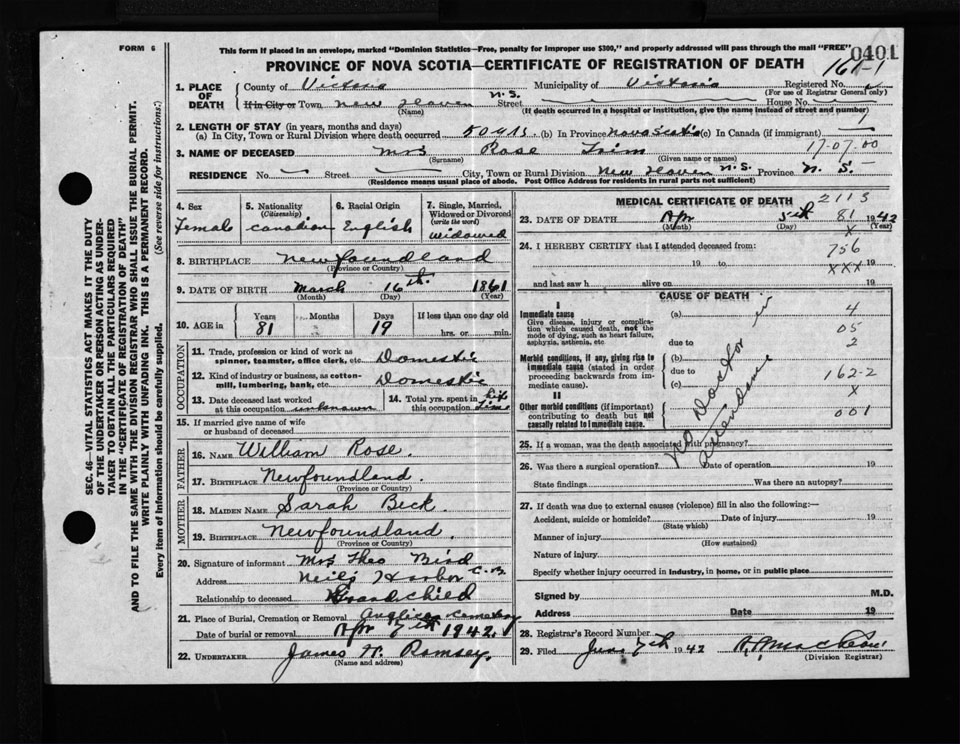 FORM 6
This form if placed in an envelope, marked "Dominion Statistics—Free, penalty for improper use $300," and properly addressed will pass through the mail "FREE"
0401
PROVINCE OF NOVA SCOTIA—CERTIFICATE OF REGISTRATION OF DEATH
161-1
1. PLACE OF DEATH
County of Victoria Municipality of Victoria Registered No.
(For use of Registrar General only)
If in City or Town New Haven N.S. Street House No.
(Name) (If death occurred in a hospital or institution, give the name instead of street and number)
2. LENGTH OF STAY (in years, months and days)
(a) In City, Town or Rural Division where death occurred 50 yrs. (b) In Province Nova Scotia (c) In Canada (if immigrant)
3. NAME OF DECEASED Mrs Rose 17-07.00
(Surname) (Given name or names)
RESIDENCE No. Street City, Town or Rural Division New Haven N.S. Province N.S.
(Residence means usual place of abode. Post Office Address for residents in rural parts not sufficient)
4. Sex
Female
5. Nationality
(Citizenship)
Canadian
6. Racial Origin
English
7. Single, Married, Widowed or Divorced
(write the word)
Widowed
8. BIRTHPLACE Newfoundland
(Province or Country)
9. DATE OF BIRTH March 16th. 1861
(Month) (Day) (Year)
10. AGE in
Years Months Days If less than one day old
81 19 hrs. or min.
OCCUPATION
11. Trade, profession or kind of work as
spinner, teamster, office clerk, etc. Domestic
12. Kind of industry or business, as cotton-
mill, lumbering, bank, etc. Domestic
13. Date deceased last worked
at this occupation unknown
14. Total yrs. spent in
this occupation Life Time
15. If married give name of wife
or husband of deceased
FATHER
16. NAME William Rose.
17. BIRTHPLACE Newfoundland
(Province or Country)
MOTHER
18. MAIDEN NAME Sarah Beck
19. BIRTHPLACE Newfoundland
(Province or Country)
20. Signature of informant Mrs Theo Bird
Address Neils Harbor C.B
Relationship to deceased Grandchild
21. Place of Burial, Cremation or Removal Anglican Cemetery
Date of burial or removal Apr 7th 1942.
22. UNDERTAKER James W. Ramsey.
(Name and address)
MEDICAL CERTIFICATE OF DEATH 2113
23. DATE OF DEATH Apr 5th 81 1942
(Month) (Day) X (Year)
24. I HEREBY CERTIFY that I attended deceased from:
756
19 to XXX 19
and last saw h alive on 19
CAUSE OF DEATH
I
Immediate cause
Give disease, injury or complication which caused death, not the mode of dying, such as heart failure, asphyxia, asthenia, etc.
Morbid conditions, if any, giving rise to immediate cause (stated in order proceeding backwards from immediate cause).
II
Other morbid conditions (if important) contributing to death but not causally related to immediate cause.
(a)
due to
(b)
due to
(c)
No Doctor in
attendance
4
05
2
162-2
X
001
25. If a woman, was the death associated with pregnancy?
26. Was there a surgical operation? Date of operation 19
State findings Was there an autopsy?
27. If death was due to external causes (violence) fill in also the following:—
Accident, suicide or homicide? Date of injury 19
(State which)
Manner of injury
(How sustained)
Nature of injury
Specify whether injury occurred in industry, in home, or in public place
Signed by M.D.
Address Date 19
28. Registrar's Record Number
29. Filed June 7th 1942
(Division Registrar)
SEC. 46—VITAL STATISTICS ACT MAKES IT THE DUTY
OF THE UNDERTAKER OR PERSON ACTING AS UNDER-
TAKER TO OBTAIN ALL THE PARTICULARS REQUIRED
IN THE "CERTIFICATE OF REGISTRATION OF DEATH"
AND TO FILE THE SAME WITH THE DIVISION REGISTRAR WHO SHALL ISSUE THE BURIAL PERMIT.
WRITE PLAINLY WITH UNFADING INK. THIS IS A PERMANENT RECORD.
Every item of Information should be carefully supplied. (See reverse side for instructions:)